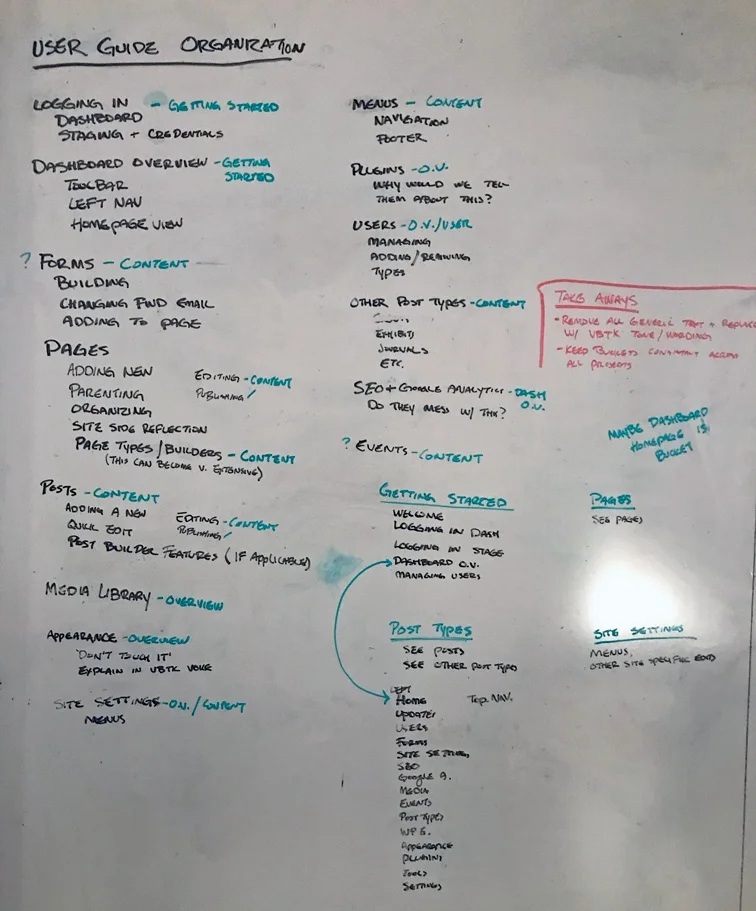 USER GUIDE ORGANIZATION
LOGGING IN - GETTING STARTED
DASHBOARD
STAGING + CREDENTIALS
DASHBOARD OVERVIEW - GETTING
STARTED
TOOLBAR
LEFT NAV
HOMEPAGE VIEW
? FORMS - CONTENT
BUILDING
CHANGING FWD EMAIL
ADDING TO PAGE
PAGES
ADDING NEW
EDITING - CONTENT
PUBLISHING
PARENTING
ORGANIZING
SITE SIDE REFLECTION
PAGE TYPES / BUILDERS - CONTENT
(THIS CAN BECOME V. EXTENSIVE)
POSTS - CONTENT
ADDING A NEW
EDITING - CONTENT
PUBLISHING
QUICK EDIT
POST BUILDER FEATURES (IF APPLICABLE)
MEDIA LIBRARY - OVERVIEW
APPEARANCE - OVERVIEW
'DON'T TOUCH IT'
EXPLAIN IN VBTK VOICE
SITE SETTINGS - O.V. / CONTENT
MENUS
MENUS - CONTENT
NAVIGATION
FOOTER
PLUGINS - O.V.
WHY WOULD WE TELL
THEM ABOUT THIS?
USERS - O.V./USER
MANAGING
ADDING/REMOVING
TYPES
OTHER POST TYPES - CONTENT
EXHIBITS
JOURNALS
ETC.
SEO + GOOGLE ANALYTICS - DASH
O.V.
DO THEY MESS W/ THIS?
? EVENTS - CONTENT
TAKE AWAYS
- REMOVE ALL GENERIC TEXT + REPLACE
W/ VBTK TONE/WORDING
- KEEP BUCKETS CONSISTENT ACROSS
ALL PROJECTS
MAYBE DASHBOARD
HOMEPAGE IS
BUCKET
GETTING STARTED
WELCOME
LOGGING IN DASH
LOGGING IN STAGE
DASHBOARD O.V.
MANAGING USERS
PAGES
SEE PAGES
POST TYPES
SEE POSTS
SEE OTHER POST TYPES
SITE SETTINGS
MENUS,
OTHER SITE SPECIFIC EDITS
LEFT
HOME
TOP NAV.
UPDATES
USERS
FORMS
SITE SETTING,
SEO
GOOGLE A.
MEDIA
EVENTS
POST TYPES
WP E.
APPEARANCE
PLUGINS
TOOLS
SETTINGS